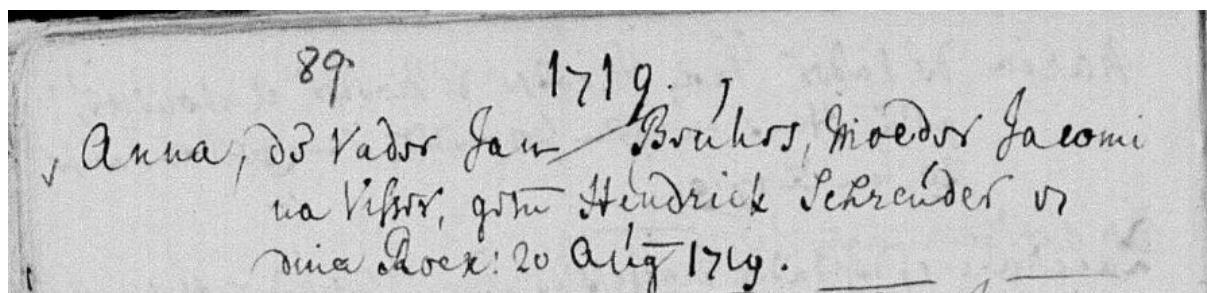 89.
1719.
Anna, de Vader Jan Bruhrs, Moeder Jacomi
na Visser, get. Hendrick Schreuder
Roex: 20 Aug 1719.